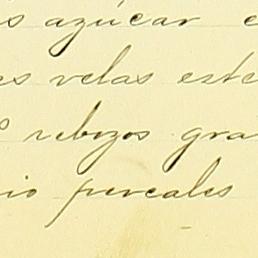 s azúcar e
es velas este
s rebozos gra
io percales